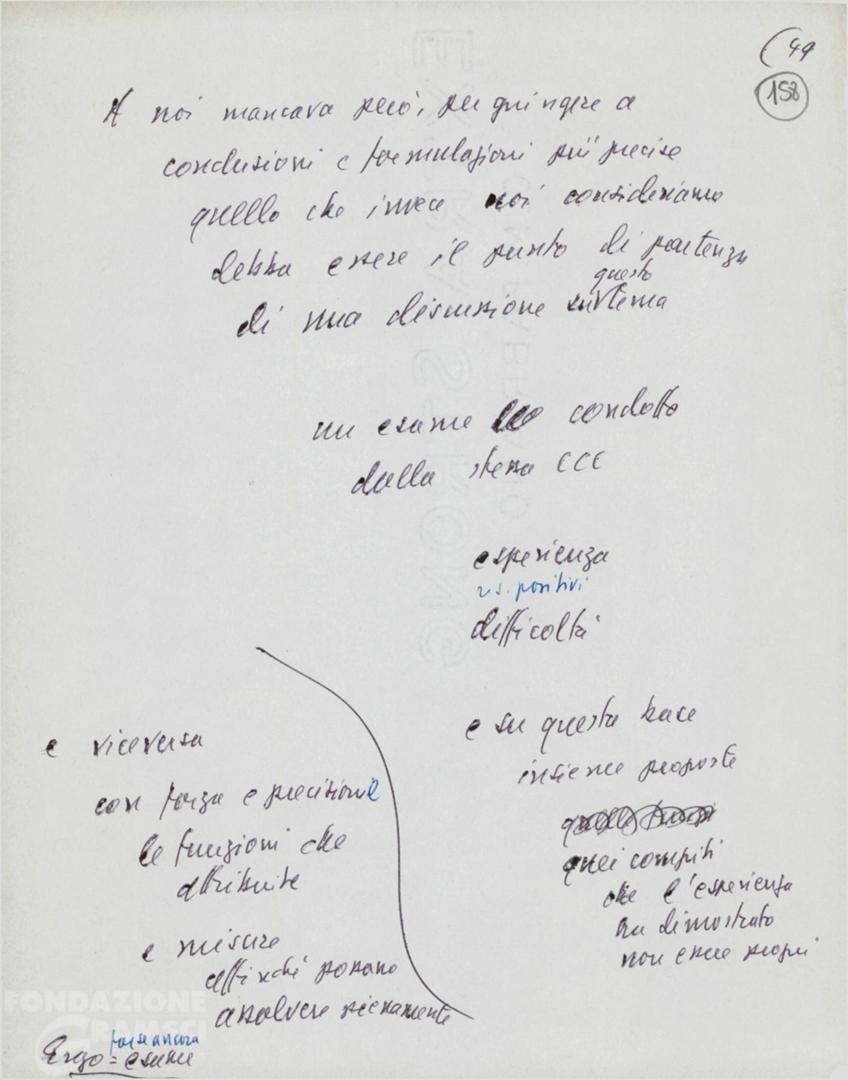 (49
158
A noi mancava però, per giungere a
conclusioni e formulazioni più precise
quello che invece noi consideriamo
debba essere il punto di partenza
di una discussione su questo tema
un esame condotto
dalla stessa CCC
esperienza
ris. positivi
difficoltà
e su questa base
insieme proposte
quei compiti
che l'esperienza
ha dimostrato
non essere propri
e viceversa
con forza e precisione
le funzioni che
attribuite
e misure
affinché possano
assolvere pienamente
forse ancora
Ergo = esame
FONDAZIONE
GRAMSCI